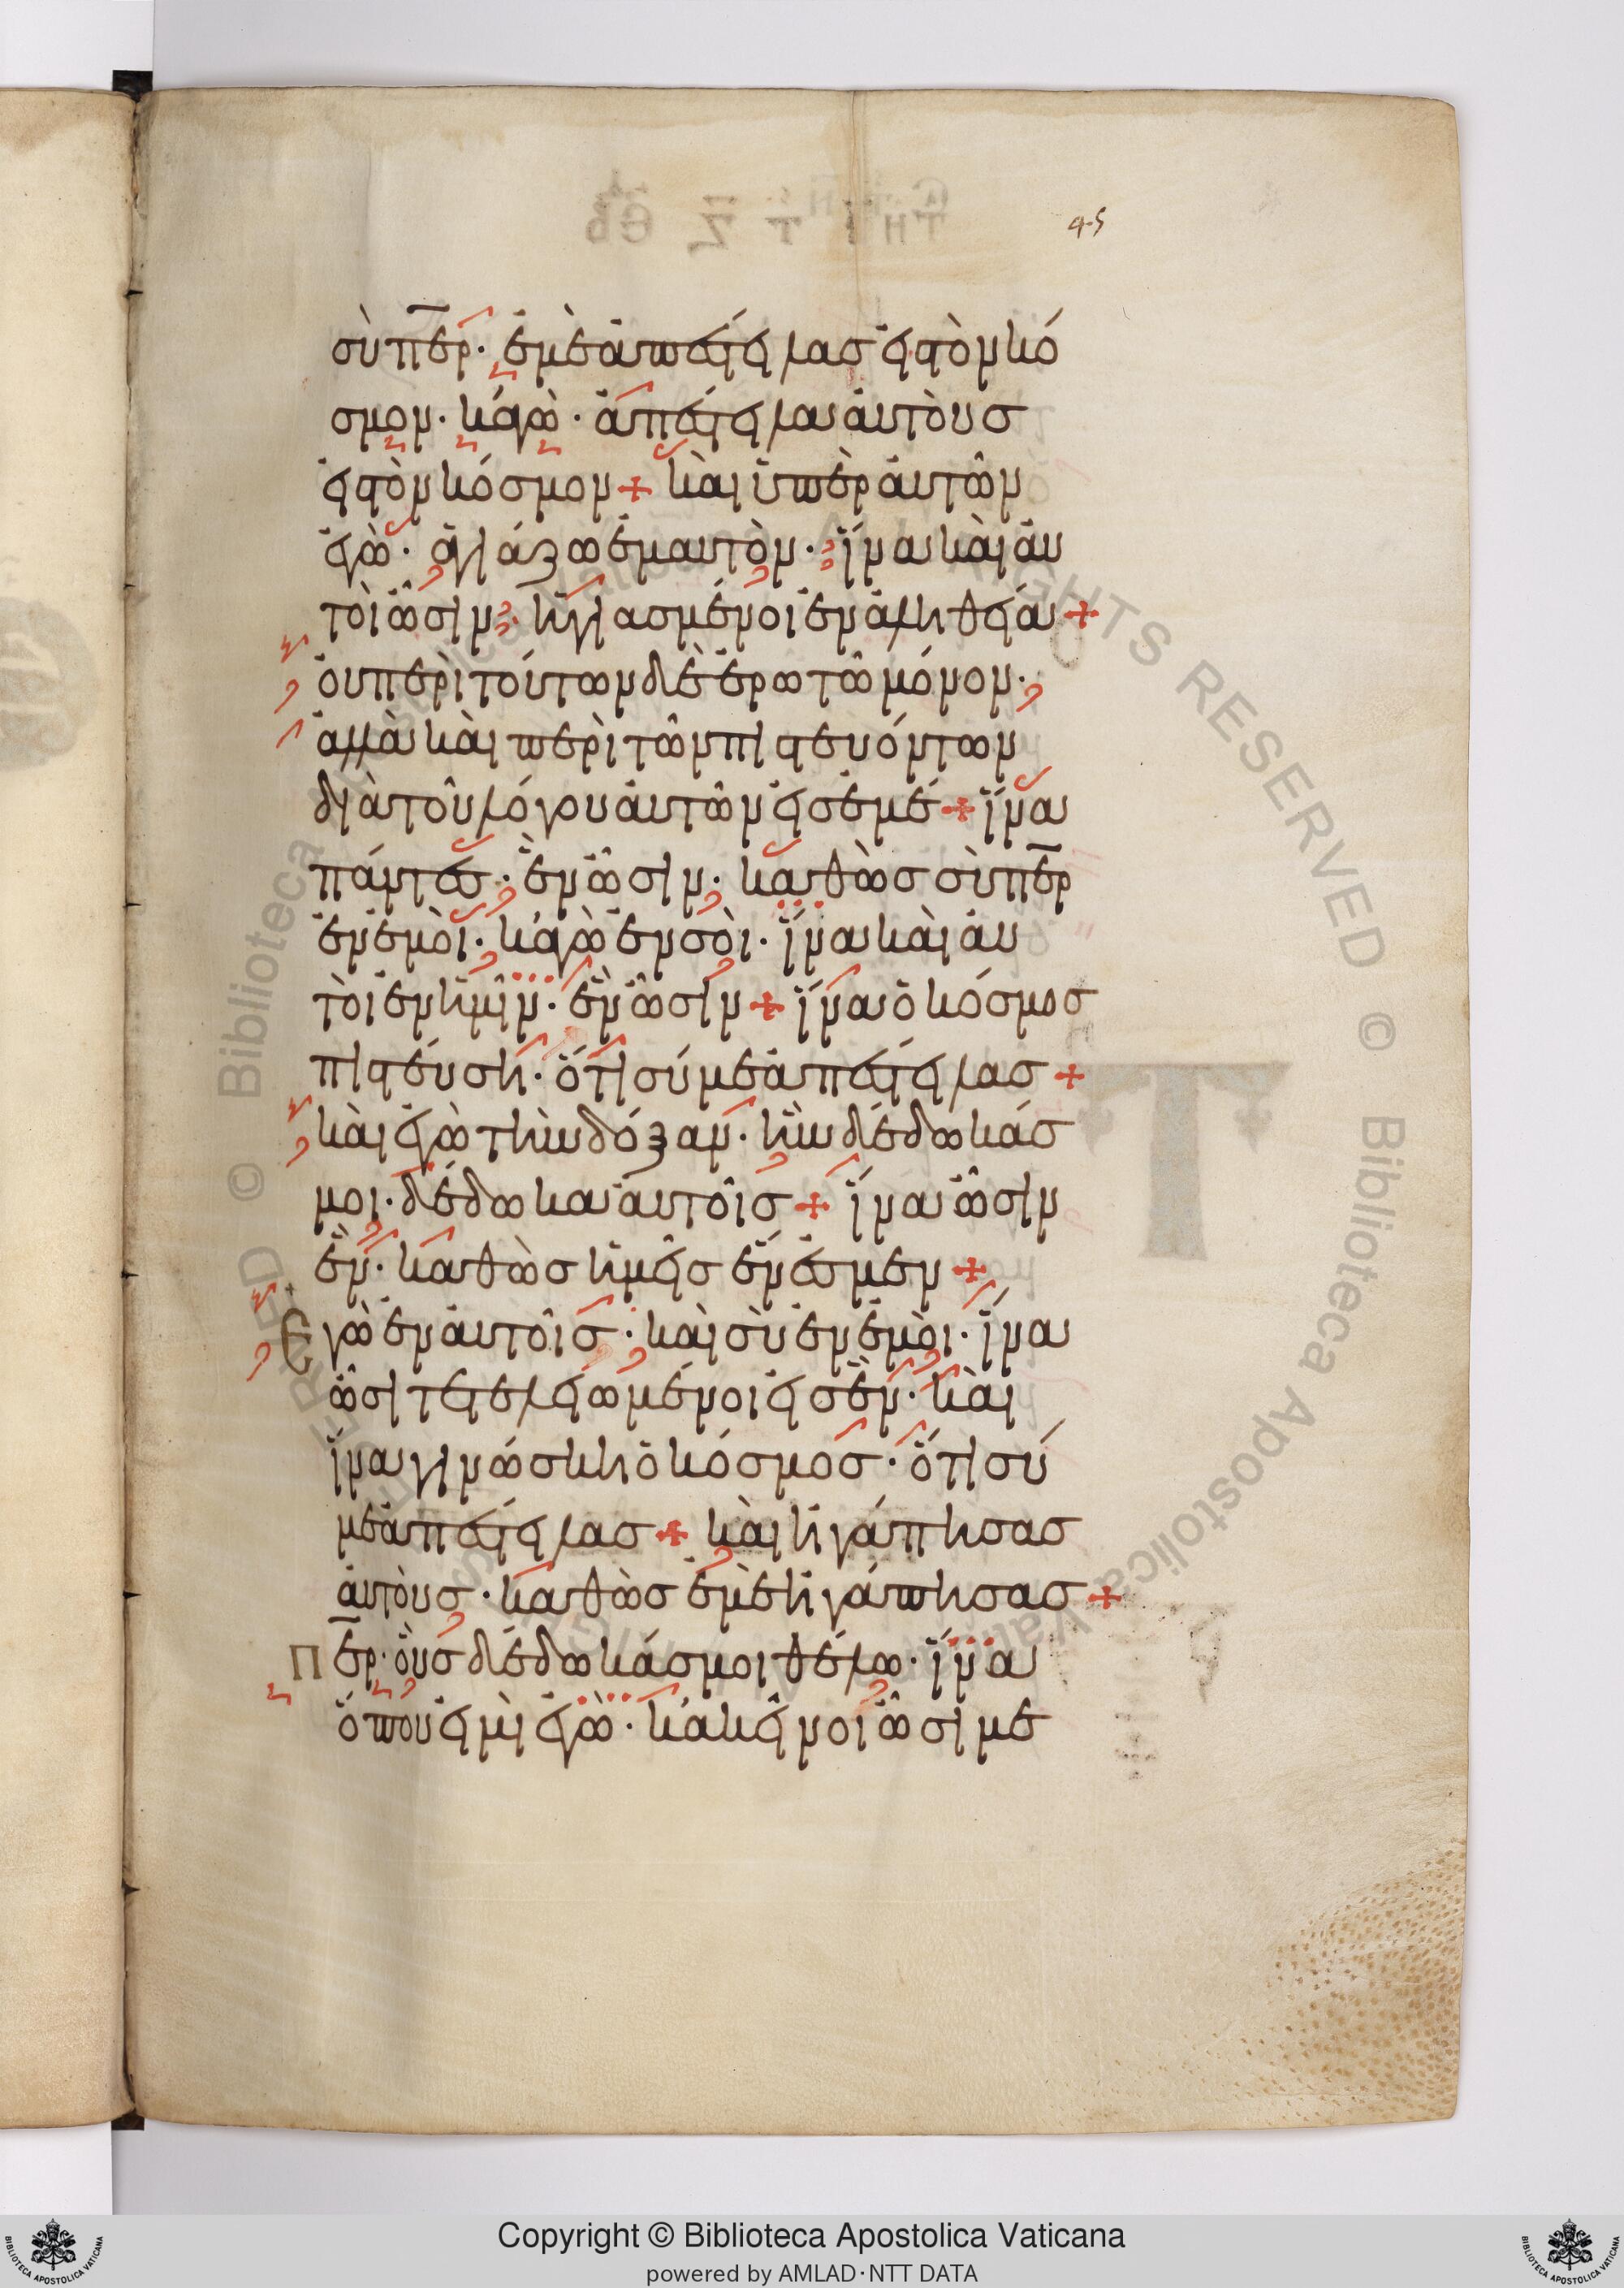 45
σὺ πε̅ρ· ἐμὲ ἀπέστειλας εἰς τὸν κό
σμον· κἀγὼ· ἀπέστειλα αὐτοὺσ
εἰς τὸν κόσμον + καὶ ὑπὲρ αὐτῶν
ἐγὼ· ἁγιάζω ἐμαυτὸν· ἵνα καὶ αὐ
τοὶ ὦσιν· ἡγιασμένοι ἐν ἀληθεία +
οὐ περὶ τούτων δὲ ἐρωτῶ μόνον·
ἀλλὰ καὶ περὶ τῶν πιστευόντων
διὰ τοῦ λόγου αὐτῶν εἰσ ἐμέ + ἵνα
πάντεσ· ἓν ὦσιν· καθὼσ σὺ πε̅ρ
ἐν ἐμοὶ· κἀγὼ ἐν σοὶ· ἵνα καὶ αὐ
τοὶ ἐν ἡμῖν· ἓν ὦσιν + ἵνα ὁ κόσμοσ
πιστεύση· ὅτι σύ με ἀπέστειλασ +
καὶ ἐγὼ τὴν δόξαν· ἣν δέδωκάσ
μοι· δέδωκα αὐτοῖσ + ἵνα ὦσιν
ἓν· καθὼσ ἡμεῖσ ἕν ἐσμεν +
Ἐγὼ ἐν αὐτοῖσ· καὶ σὺ ἐν ἐμοὶ· ἵνα
ὦσι τετελειωμένοι εἰσ ἓν· καὶ
ἵνα γινώσκη ὁ κόσμοσ· ὅτι σύ
με ἀπέστειλασ + καὶ ἠγάπησασ
αὐτοὺσ· καθὼσ ἐμὲ ἠγάπησασ +
Πε̅ρ· οὓσ δέδωκάσ μοι θέλω· ἵνα
ὅπου εἰμὶ ἐγὼ· κἀκεῖνοι ὦσι με
Copyright © Biblioteca Apostolica Vaticana
powered by AMLAD·NTT DATA